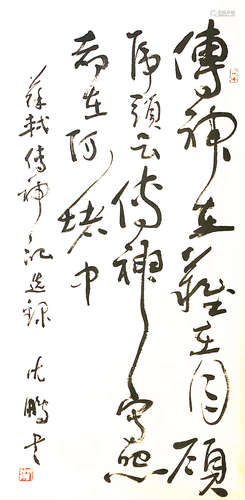 傳神之難在目顧
虎頭云傳神寫照
都在阿堵中
蘇軾傳神記選錄 沈鵬書